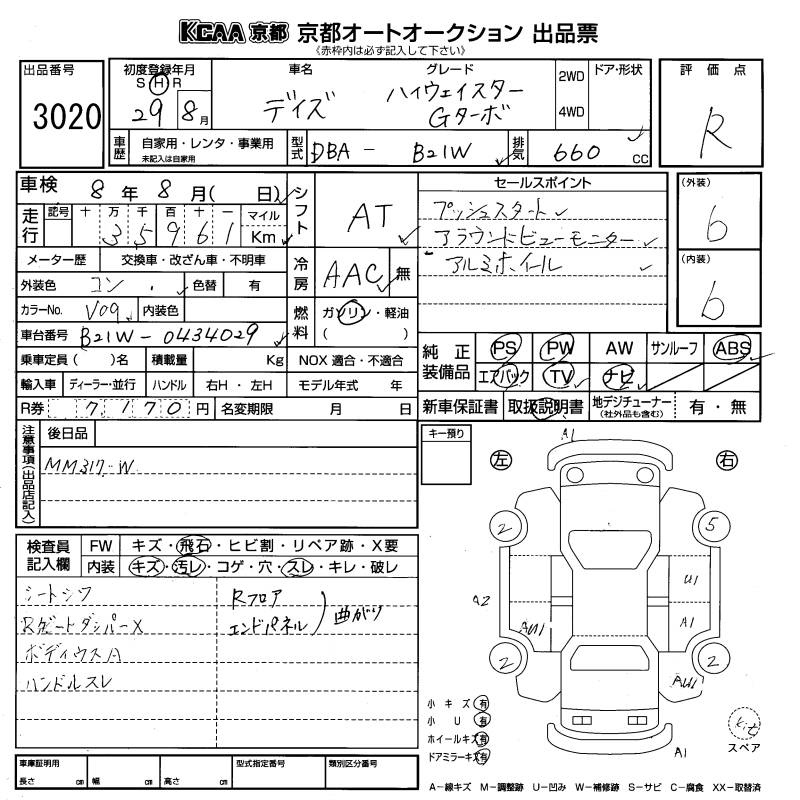 KCAA 京都 京都オートオークション 出品票
《赤枠内は必ず記入して下さい》
出品番号
3020
初度登録年月
S H R
29 8月
車名
デイズ
グレード
ハイウェイスター
Gターボ
2WD
4WD
ドア・形状
評価点
R
車歴
自家用・レンタ・事業用
未記入は自家用
型式
DBA - B21W
排気
660 CC
車検 8年8月(日)
シフト
AT
セールスポイント
プッシュスタート
アラウンドビューモニター
アルミホイール
(外装)
6
(内装)
6
走行
記号 十 万 千 百 十 一
3 5 9 6 1
マイル
Km
メーター歴 交換車・改ざん車・不明車
冷房
AAC 無
外装色 コン 色替 有
カラーNo. V09 内装色
燃料
ガソリン・軽油
( )
車台番号 B21W-0434029
乗車定員 ( )名 積載量 Kg NOX 適合・不適合
輸入車 ディーラー・並行 ハンドル 右H・左H モデル年式 年
R券 7,170円 名変期限 月 日
純正装備品
PS PW AW サンルーフ ABS
エアバック TV ナビ
新車保証書 取扱説明書 地デジチューナー(社外品も含む) 有・無
注意事項(出品店記入)
後日品
MM317-W
キー預り
検査員記入欄
FW キズ・飛石・ヒビ割・リペア跡・X要
内装 キズ・汚レ・コゲ・穴・スレ・キレ・破レ
シートシワ
RゲートダンパーX
ボディウスA
ハンドルスレ
Rフロア
エンドパネル
曲がり
左
右
A1
2
5
A2
U1
AU1
A1
2
2
AU1
A1
小キズ 有
小U 有
ホイールキズ 有
ドアミラーキズ 有
kit
スペア
車庫証明用
長さ cm 幅 cm 高さ cm
型式指定番号
類別区分番号
A-線キズ M-調整跡 U-凹み W-補修跡 S-サビ C-腐食 XX-取替済